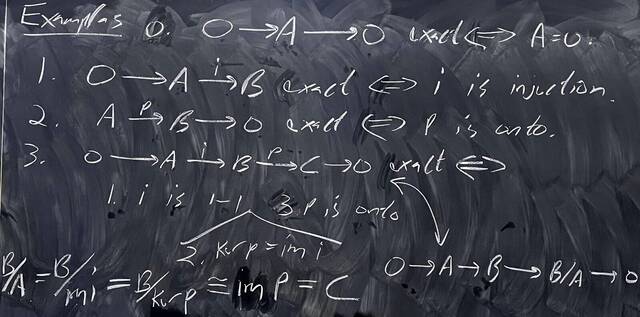 Examples 0. 0 → A → 0 exact ⟺ A=0.
1. 0 → A →ⁱ B exact ⟺ i is injection.
2. A →ᵖ B → 0 exact ⟺ p is onto.
3. 0 → A →ⁱ B →ᵖ C → 0 exact ⟺
1. i is 1-1 3. p is onto
2. ker p = im i
0 → A → B → B/A → 0
B/A = B/im i = B/ker p ≅ im p = C